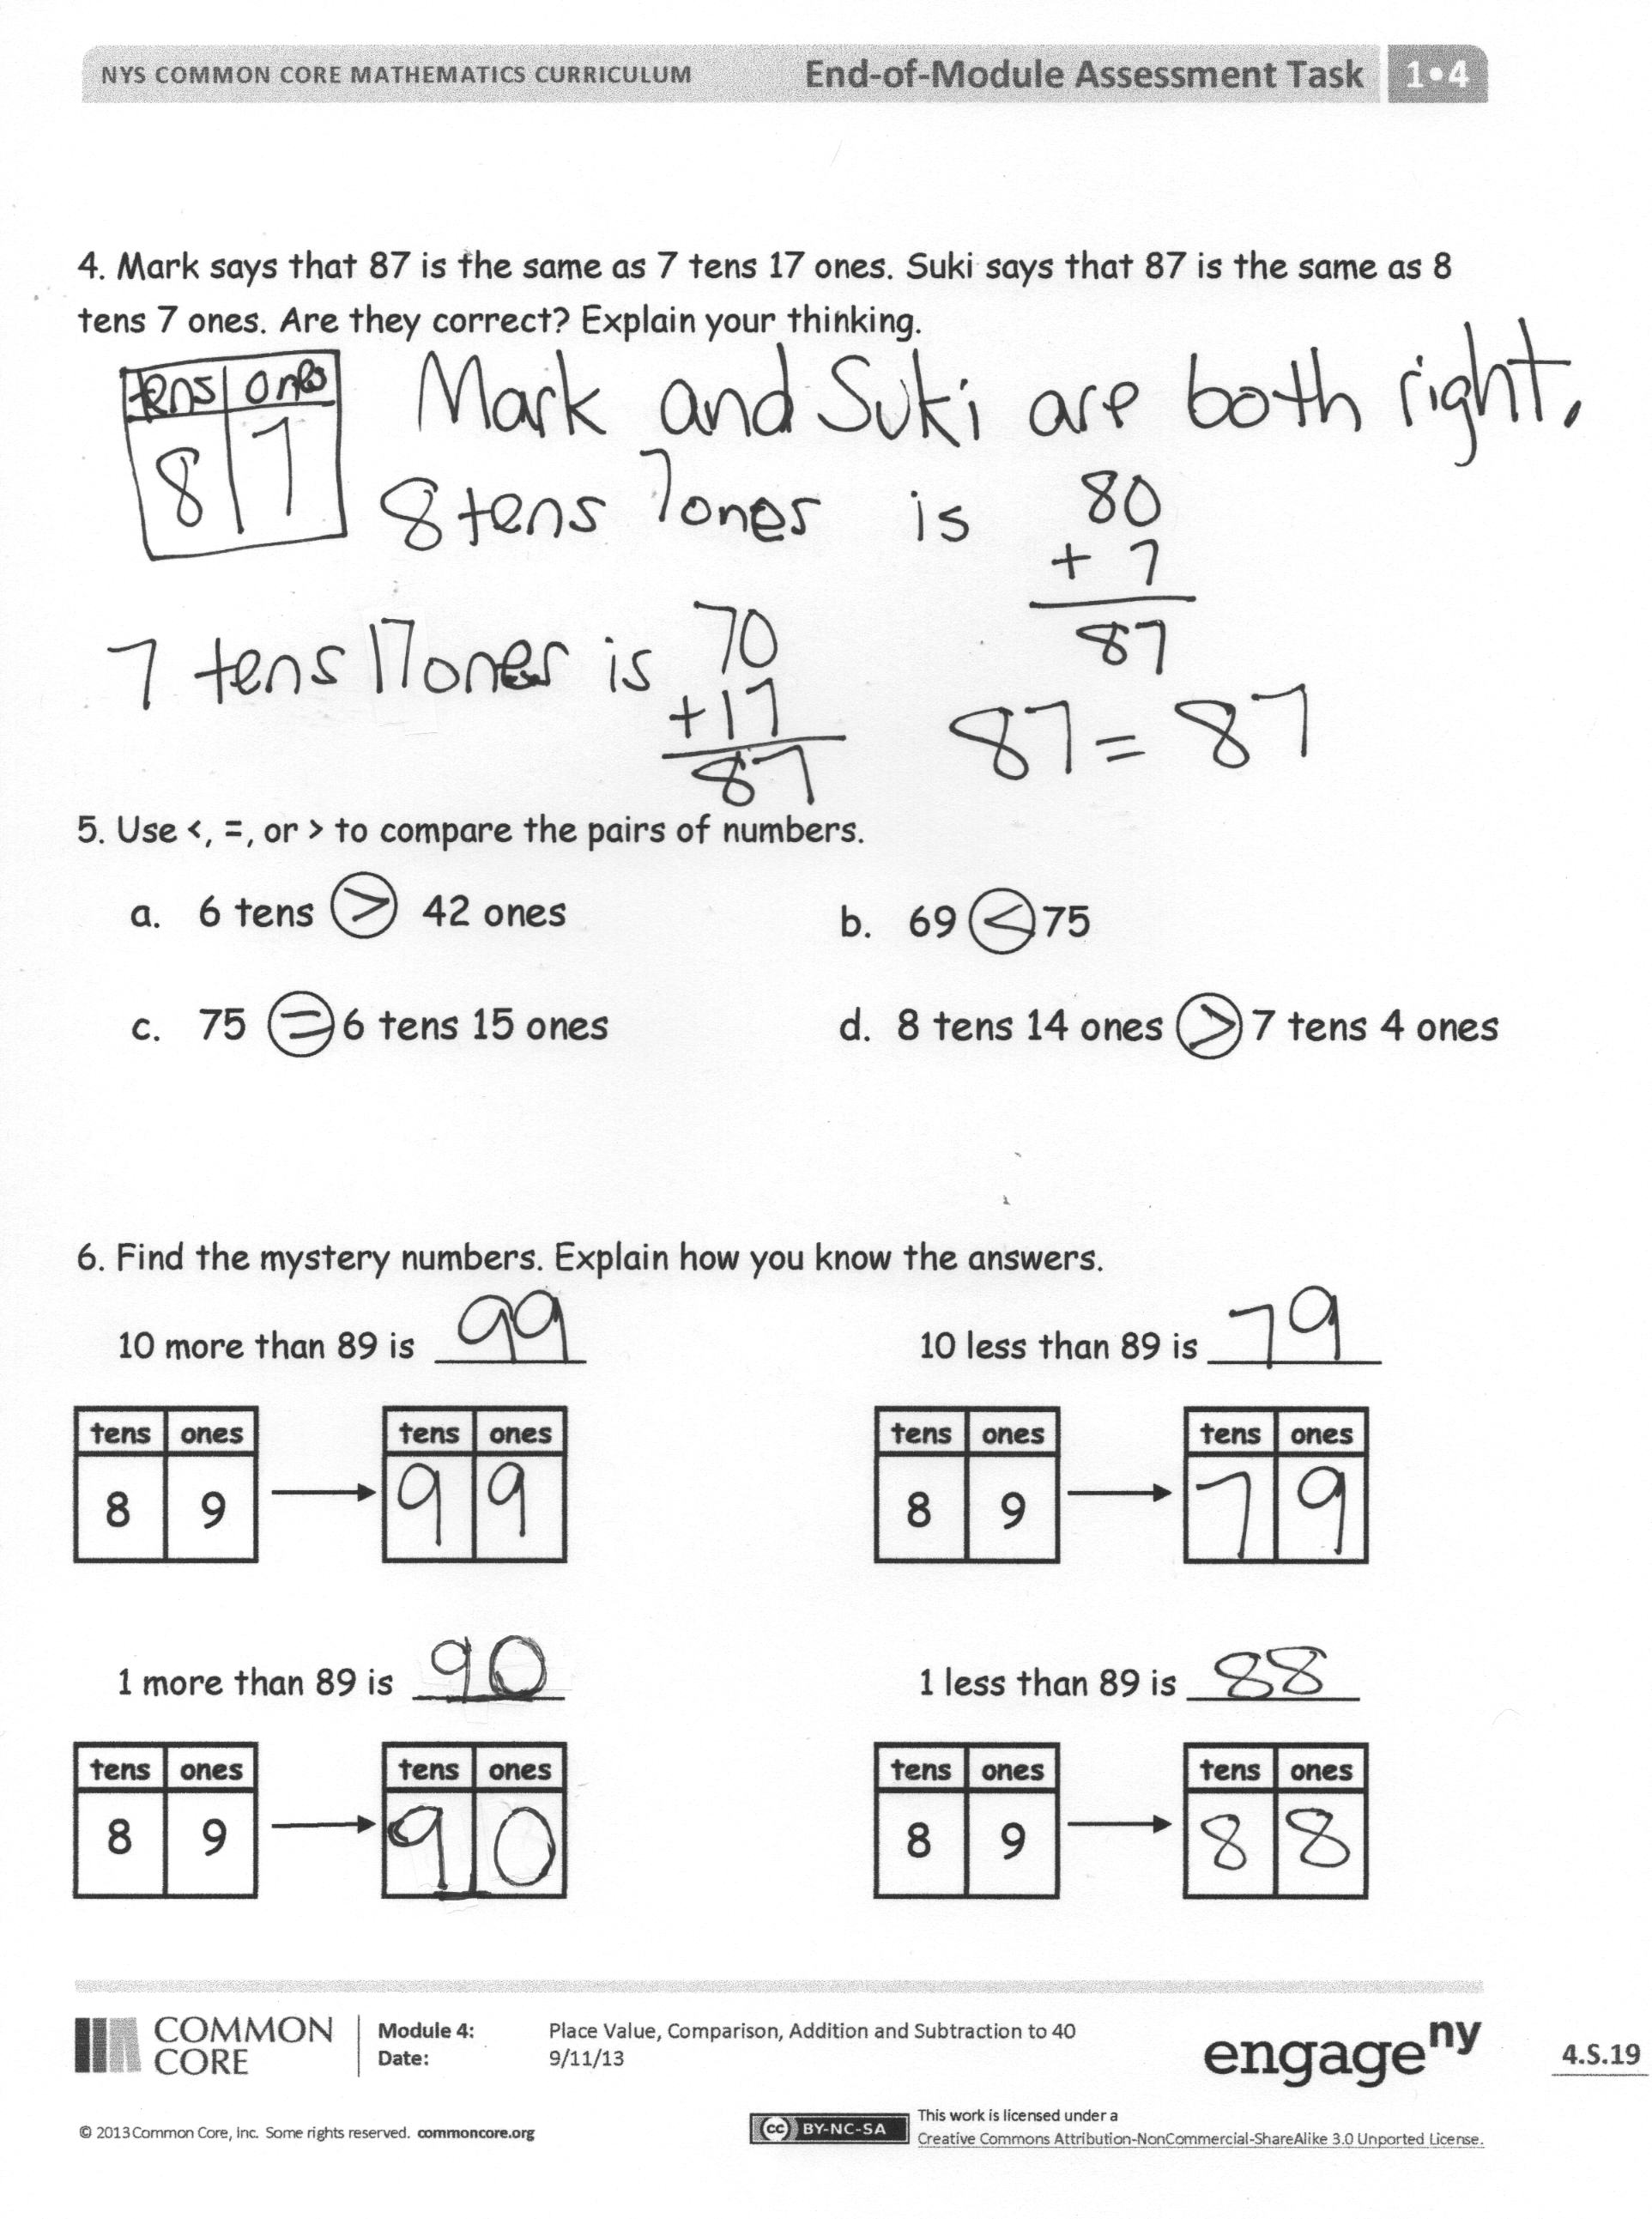 NYS COMMON CORE MATHEMATICS CURRICULUM End-of-Module Assessment Task 1•4
4. Mark says that 87 is the same as 7 tens 17 ones. Suki says that 87 is the same as 8
tens 7 ones. Are they correct? Explain your thinking.
tens ones
8 7
Mark and Suki are both right.
8 tens 7 ones is 80
+ 7
87
7 tens 17 ones is 70
+17
87
87 = 87
5. Use <, =, or > to compare the pairs of numbers.
a. 6 tens > 42 ones
b. 69 < 75
c. 75 = 6 tens 15 ones
d. 8 tens 14 ones > 7 tens 4 ones
6. Find the mystery numbers. Explain how you know the answers.
10 more than 89 is 99
tens ones tens ones
8 9 → 9 9
10 less than 89 is 79
tens ones tens ones
8 9 → 7 9
1 more than 89 is 90
tens ones tens ones
8 9 → 9 0
1 less than 89 is 88
tens ones tens ones
8 9 → 8 8
COMMON
CORE
Module 4: Place Value, Comparison, Addition and Subtraction to 40
Date: 9/11/13
engage ny
4.S.19
© 2013 Common Core, Inc. Some rights reserved. commoncore.org
cc BY-NC-SA
This work is licensed under a
Creative Commons Attribution-NonCommercial-ShareAlike 3.0 Unported License.